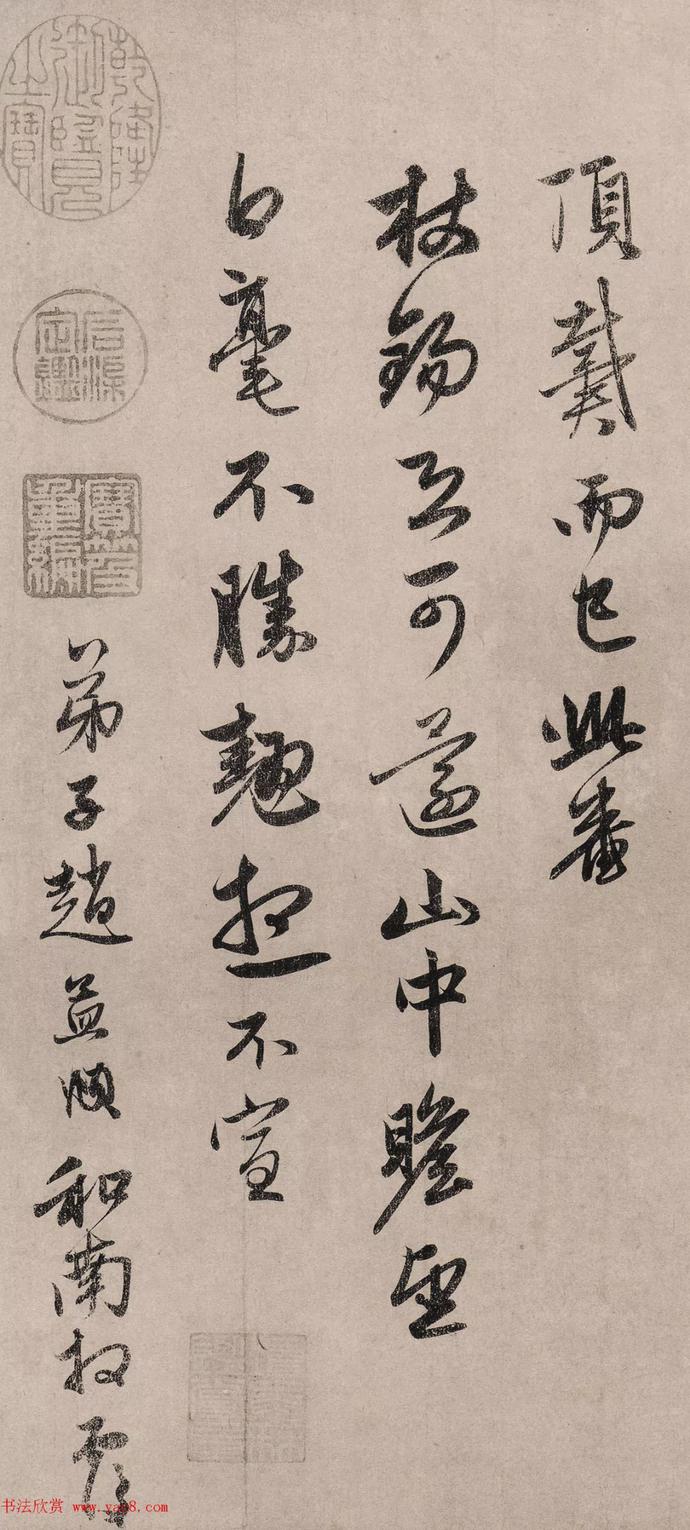 頂戴而已此番
杖錫可還山中瞻望
白毫不勝翹想不宣
弟子趙孟頫和南拜覆
乾隆御覽之寶
石渠定鑑
寶笈重編
书法欣赏 www.yac8.com